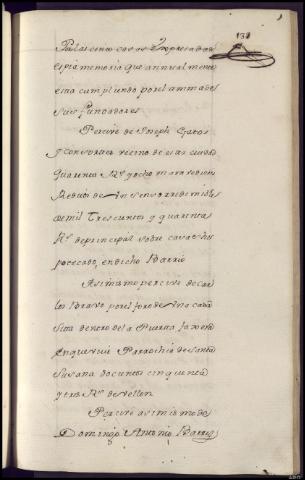 131
Palas cinco casas Expresadas
es pia memoria que annualmente
esta cumpliendo por el anima de
sus fundadores
Percive de Joseph Gatos
y consortes vecino de esta ciudad
quarenta Rs. y ocho maravedises
Reditos de Un senso redimible
de mil Trescientos y quarenta
Rs. de principal sobre casa
en dicho Barrio
Asimismo percive de Car
los Bravo por el foro de Una casa
sita dentro de la Puerta
en que vive Parrochia de Santa
Susana docientos cinquenta
y tres Rs. de vellon
Percive asimismo de
Domingo Antonio Barros